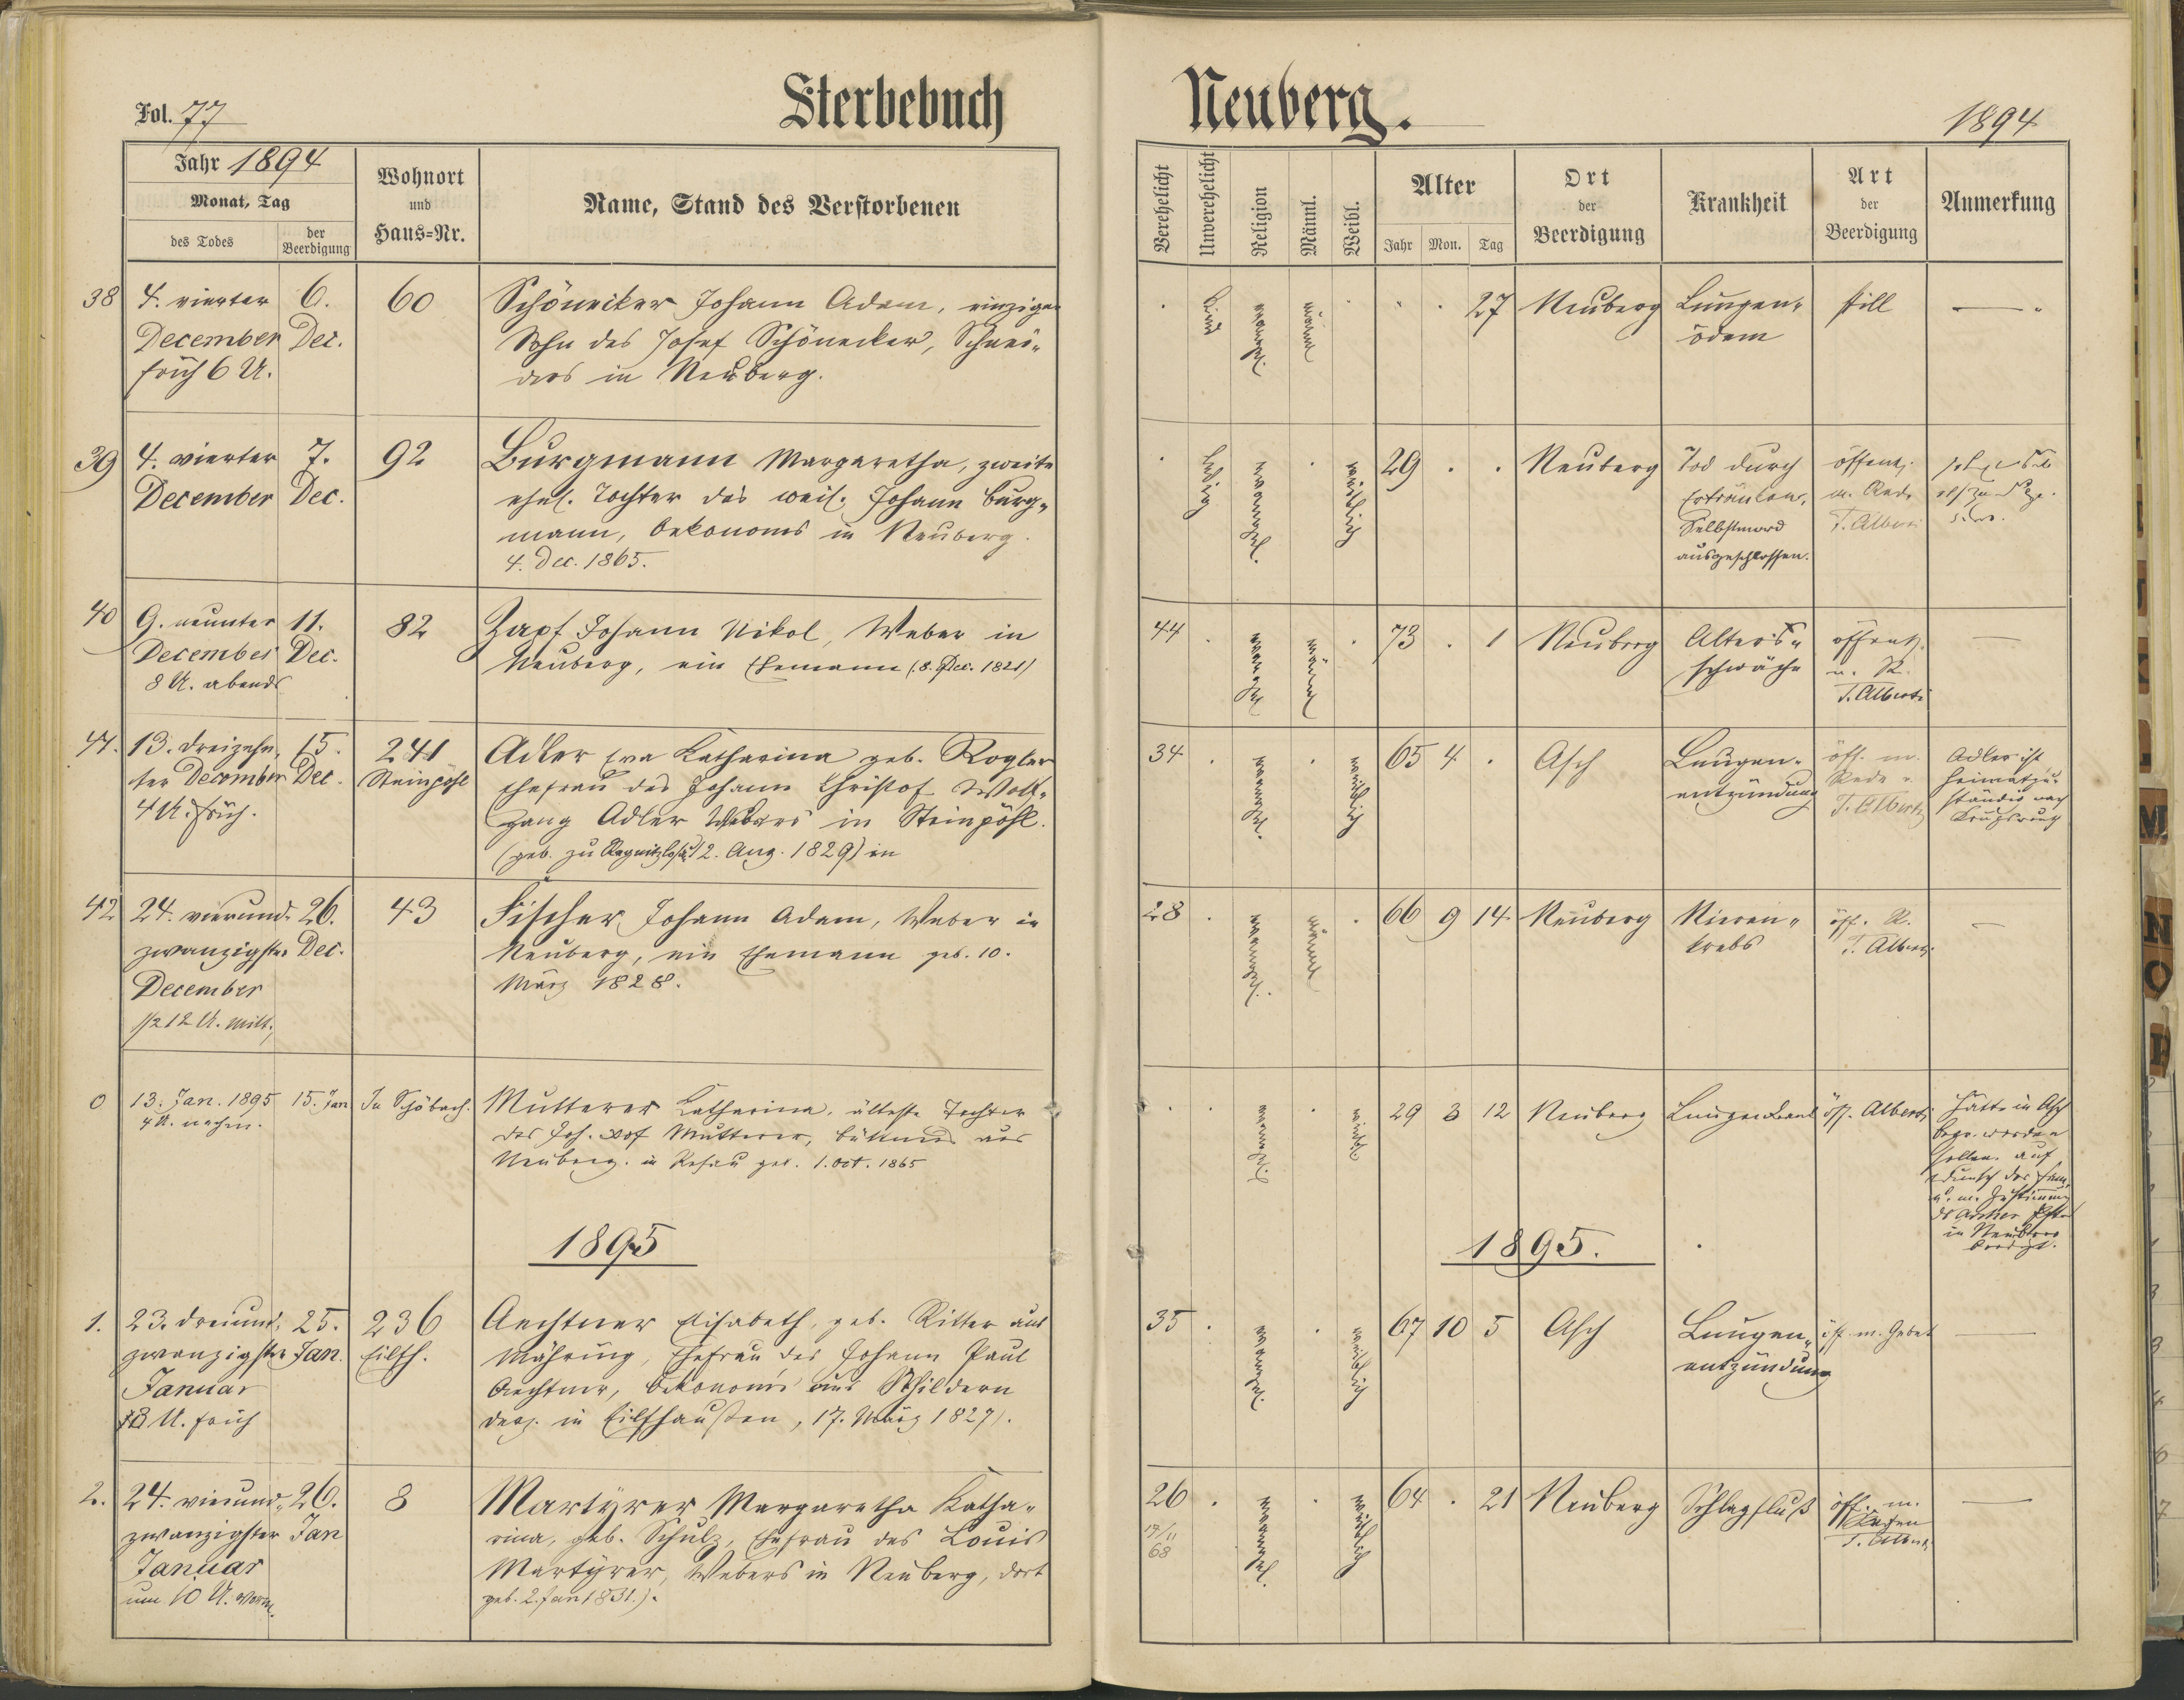 Sterbebuch Neuberg.
Fol. 77
1894
Jahr 1894
Monat, Tag
des Todes
der Beerdigung
Wohnort
und
Haus=Nr.
Name, Stand des Verstorbenen
Verehelicht
Unverehelicht
Religion
Männl.
Weibl.
Alter
Jahr Mon. Tag
Ort
der
Beerdigung
Krankheit
Art
der
Beerdigung
Anmerkung
38
4. vierter
December
früh 6 U.
6.
Dec.
60
Schönecker Johann Adam, einziger
Sohn des Josef Schönecker, Schnei-
ders in Neuberg.
Kind
evangel.
männl
27
Neuberg
Lungen-
ödem
still
39
4. vierter
December
7.
Dec.
92
Burgmann Margaretha, zweite
ehel. Tochter des weil. Johann Burg-
mann, Oekonoms in Neuberg.
4. Dec. 1865.
ledig
evangel.
weiblich
29
Neuberg
Tod durch
Ertränken,
Selbstmord
ausgeschlossen.
öffentl.
m. Rede
T. Alberti
40
9. neunter
December
8 U. abends
11.
Dec.
82
Zapf Johann Nikol, Weber in
Neuberg, ein Ehemann (8. Dec. 1821)
44
evangel
männl
73 . 1
Neuberg
Alters-
schwäche
öffentl.
u. R.
T. Alberti
41.
13. dreizehn-
ter December
4 U. früh.
15.
Dec.
241
Steinpöhl
Adler Eva Katharina geb. Rogler
Ehefrau des Johann Christof Wolf-
gang Adler Webers in Steinpöhl.
(geb. zu Regnitzlosau 12. Aug. 1829) in
34
evangel.
weiblich
65 4 .
Asch
Lungen-
entzündung
öff. m.
Rede
T. Alberti
Adler ist
heimatzu-
ständig nach
Krugsreuth
42
24. vierund-
zwanzigster
December
1/2 12 U. Mitt.
26.
Dec.
43
Fischer Johann Adam, Weber in
Neuberg, ein Ehemann geb. 10.
März 1828.
28
evangel.
männl
66 9 14
Neuberg
Nieren-
krebs
öff. R.
T. Alberti
0
13. Jan. 1895
4 U. nachm.
15. Jan
In Schönbach.
Mutterer Katharina, älteste Tochter
des Joh. Mutterer, aus
Neuberg. in Rehau geb. 1. Oct. 1865
evangel.
weibl.
29 3 12
Neuberg
öff. Alberti
Hätte in Asch
begr. werden
sollen. auf
Wunsch der Fam.
u. m. Zustimmung
in Neuberg
beerdigt.
1895
1895.
1.
23. dreiund-
zwanzigster
Januar
U. früh
25.
Jan.
236
Eilfh.
Aechtner Elisabeth, geb. Ritter aus
Mähring, Ehefrau des Johann Paul
Aechtner, Oekonoms aus Schildern
derz. in Eilfhausen, 17. März 1827).
35
evangel.
weiblich
67 10 5
Asch
Lungen-
entzündung
öff. m. Gebet
2.
24. vierund-
zwanzigster
Januar
um 10 U. Vorm.
26.
Jan
8
Martyrer Margaretha Katha-
rina, geb. Schulz, Ehefrau des Louis
Martyrer, Webers in Neuberg, dort
geb. 2. Jan 1831.).
26
17/11
68
evangel.
weiblich
64 . 21
Neuberg
Schlagfluß
öff. m.
Segen
T. Alberti